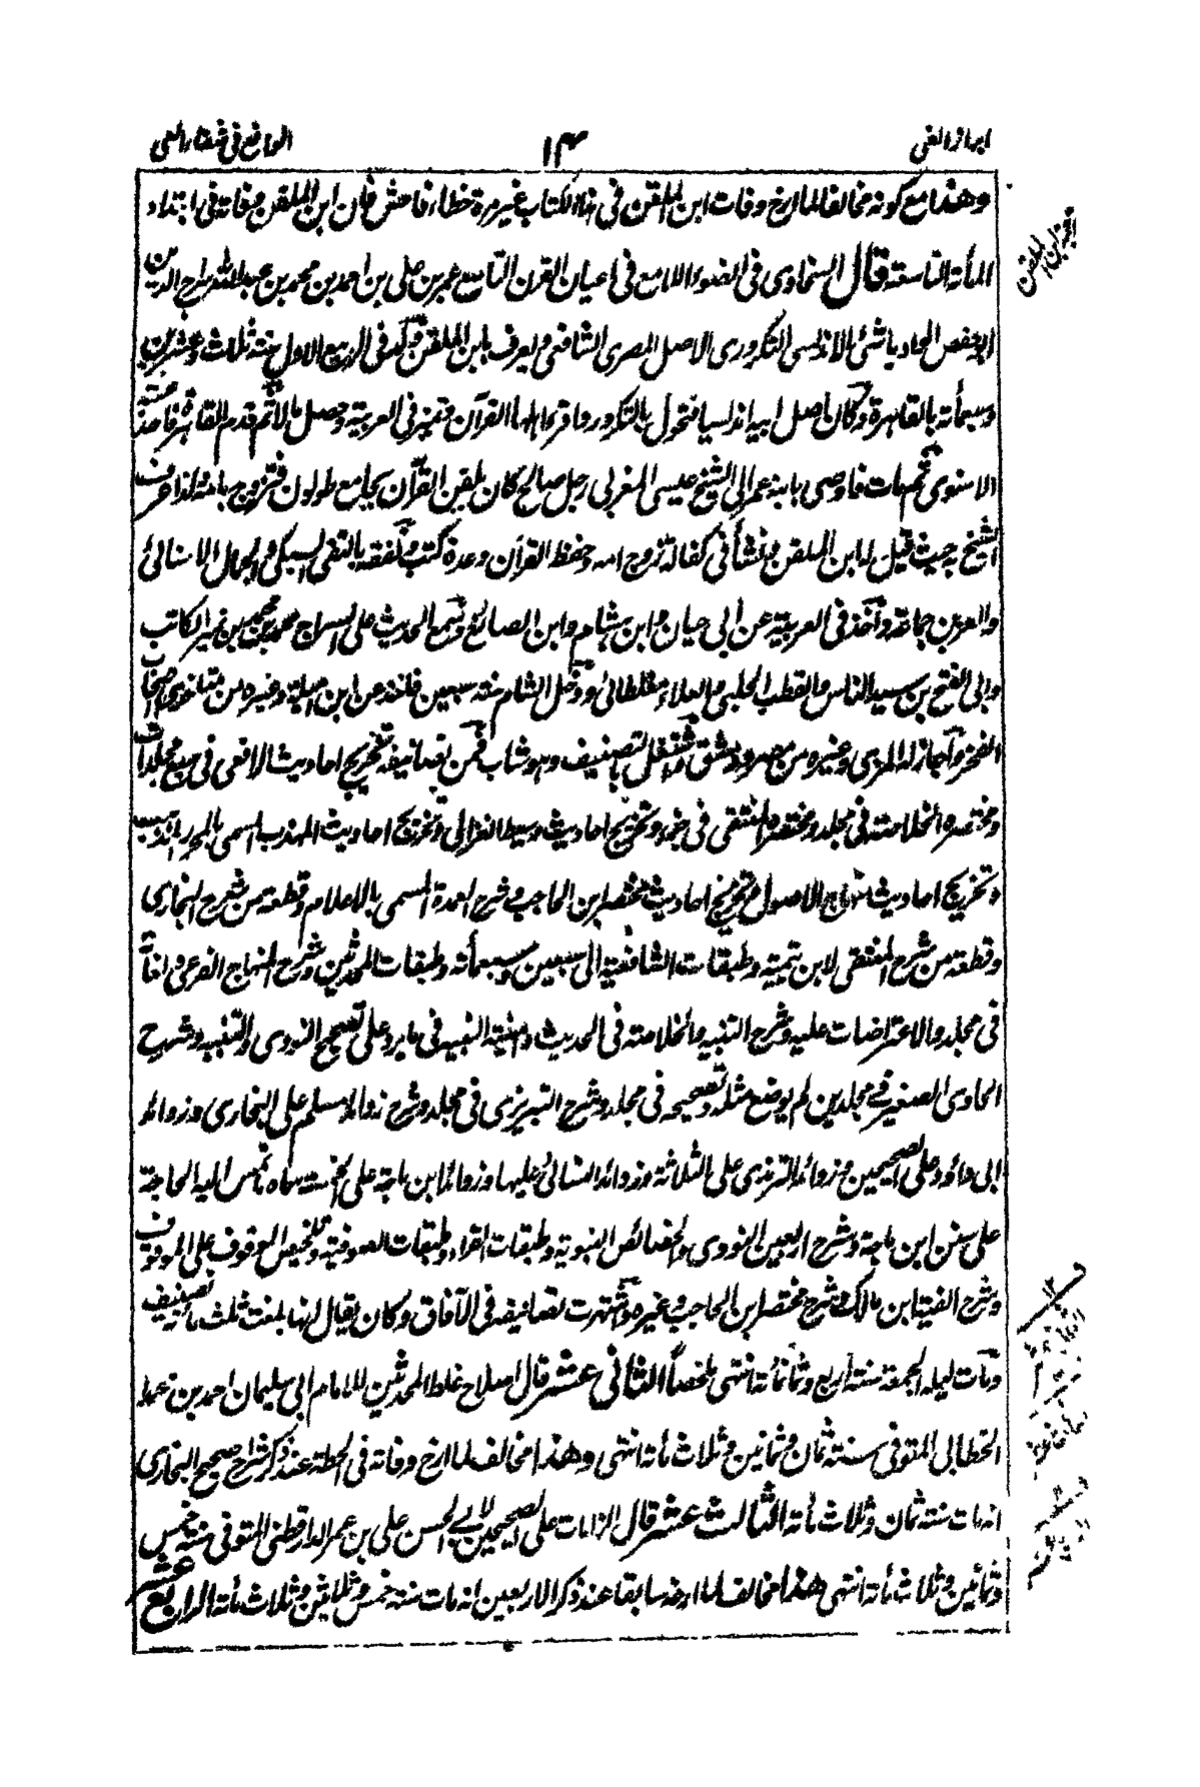 ابراز الغي ١٤ الواقع في شفاء العي
وهذا مع كونه مخالفا لما ارخ وفات ابن الملقن في هذا الكتاب غير مرة خطاء فاحش فان ابن الملقن وفاته في ابتداء
المأة التاسعة قال السخاوى في الضوء اللامع في اعيان القرن التاسع عمر بن على بن احمد بن محمد بن عبد الله سراج الدين
ابو حفص الوادياشى الاندلسى التكرورى الاصل المصرى الشافعى ويعرف بابن الملقن ولد في الربيع الاول سنة ثلاث وعشرين
وسبعمأة بالقاهرة وكان اصل ابيه اندلسيا فتحول بالتكرور واقرء اهلها القرآن وتميز في العربية وحصل مالا ثم قدم القاهرة فاخذ عنه
الاسنوى ثم مات فاوصى بابنه عمر الى الشيخ عيسى المغربى رجل صالح كان يلقن القرآن بجامع طولون فتزوج بامه ولذا عرف
الشيخ به حيث قيل له ابن الملقن ونشأ في كفالة زوج امه وحفظ القرآن وعدة كتب وتفقه بالتقى السبكى والجمال الاسنائى
والعز بن جماعة وأخذ في العربية عن ابى حيان وابن هشام وابن الصائغ وسمع الحديث على السراج محمد بن محمد بن نمير الكاتب
وابى الفتح بن سيد الناس والقطب الحلبى والعلاء مغلطائى ودخل الشام سنة سبعين فاخذ عن ابن اميلة وغيره من متأخرى اصحاب
الفخر واجاز له المزى وغيره من مصر ودمشق واشتغل بالتصنيف وهو شاب فمن تصانيفه تخريج احاديث الرافعى في سبع مجلدات
ومختصره الخلاصة في مجلد ومختصره المنتقى في جزء وتخريج احاديث وسيط الغزالى وتخريج احاديث المهذب المسمى بالمحرر المذهب
وتخريج احاديث منهاج الاصول وتخريج احاديث مختصر ابن الحاجب وشرح العمدة المسمى بالاعلام وقطعة من شرح البخارى
وقطعة من شرح المنتقى لابن تيمية وطبقات الشافعية الى سبعين وسبعمأة وطبقات المحدثين وشرح المنهاج الفرعى ولغاته
في مجلد والاعتراضات عليه وشرح التنبيه والخلاصة في الحديث وامنية النبيه في ما يرد على تصحيح النووى والتنبيه وشرح
الحاوى الصغير في مجلدين لم يوضع مثله وتصحيحه في مجلد وشرح التبريزى في مجلد وشرح زوائد مسلم على البخارى وزوائد
ابى داؤد وعلى الصحيحين وزوائد الترمذى على الثلاثة وزوائد النسائى عليها وزوائد ابن ماجة على الخمسة سماه ما تمس اليه الحاجة
على سنن ابن ماجة وشرح اربعين النووى والخصائص النبوية وطبقات القراء وطبقات الصوفية وتلخيص الوقوف على الموقوف
وشرح الفية ابن مالك وشرح مختصر ابن الحاجب وغيره واشتهرت تصانيفه في الآفاق وكان يقال انها بلغت ثلث مأة تصنيف
ومات ليلة الجمعة سنة اربع وثمانمأة انتهى ملخصاً الثاني عشر قال اصلاح غلط المحدثين للامام ابى سليمان احمد بن محمد
الخطابى المتوفى سنة ثمان وثمانين وثلاث مأة انتهى وهذا مخالف لما ارخ وفاته في الحطة عند ذكر شراح صحيح البخارى
انه مات سنة ثمان وثلاث مأة الثالث عشر قال الالزامات على الصحيحين لابى الحسن على بن عمر الدارقطنى المتوفى سنة خمس
وثمانين وثلاث مأة انتهى هذا مخالف لما ارخه سابقا عند ذكر الاربعين انه مات سنة خمس وثلاثين وثلاث مأة الرابع عشر
ابن الملقن